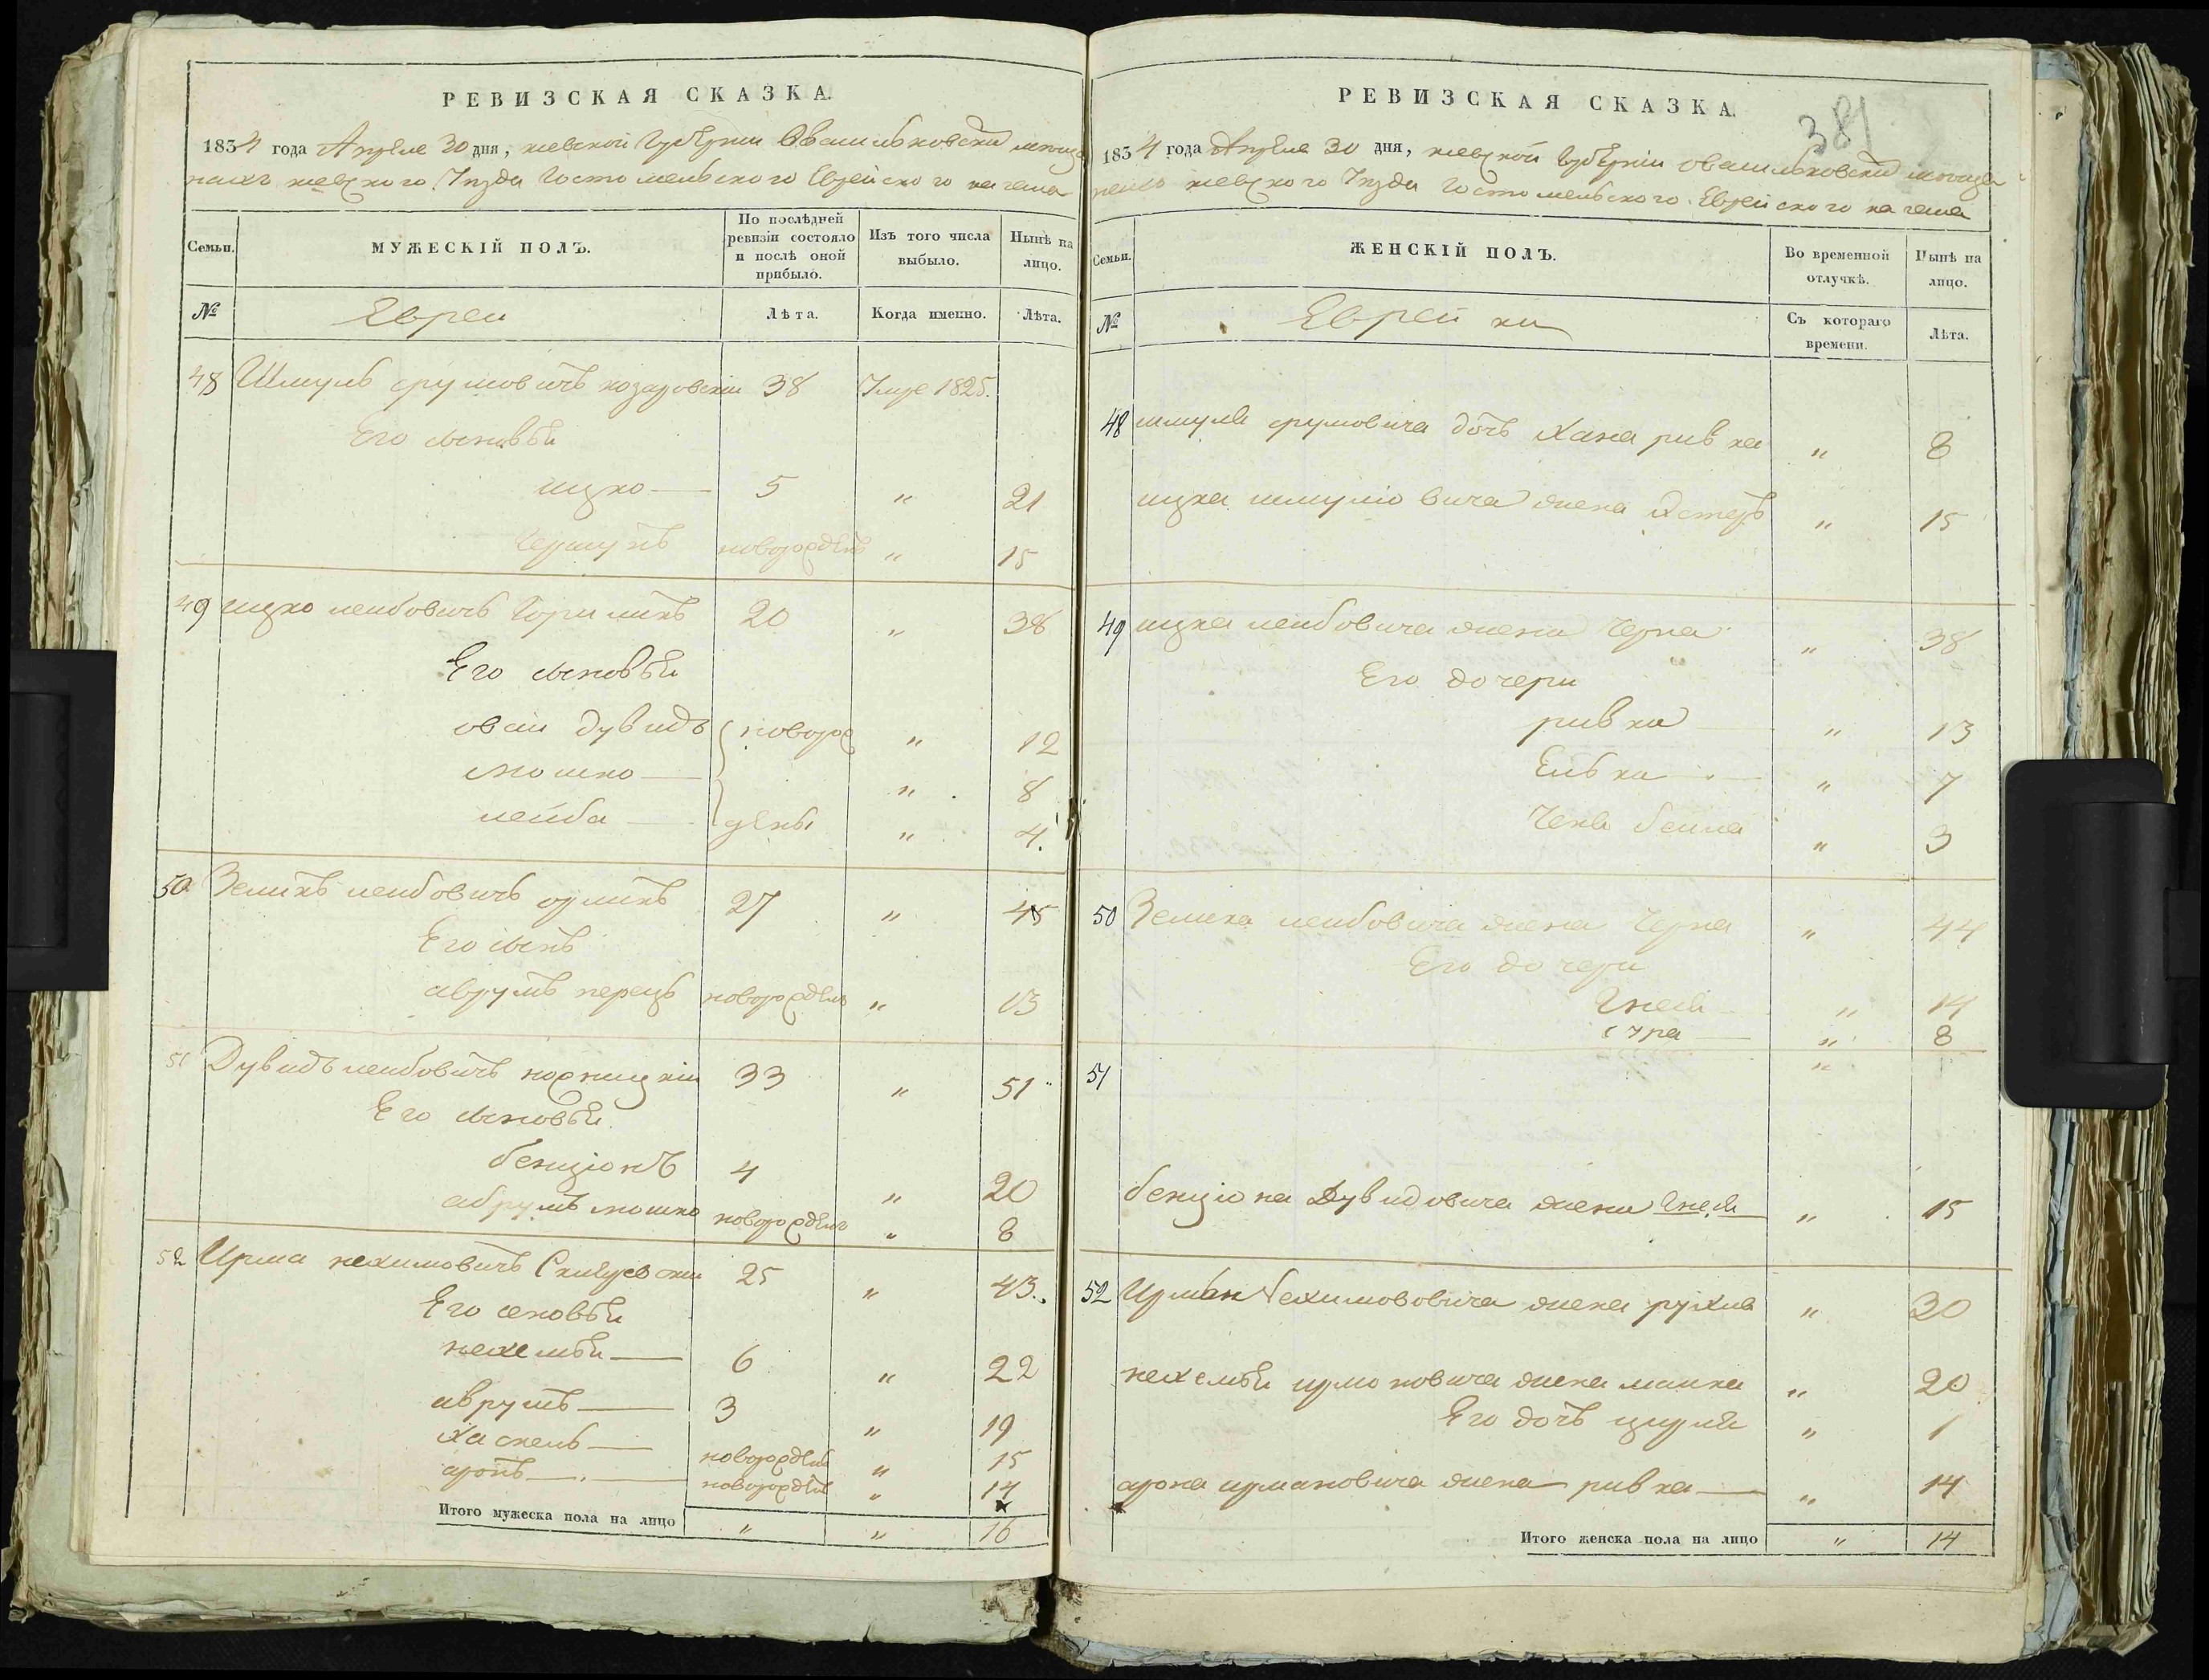 РЕВИЗСКАЯ СКАЗКА.
1834 года Апреля 30 дня, киевской Губернии Овасильковскихъ мещанахъ киевского Уезда Гостомельского Еврейского кагала
Семьи. МУЖЕСКІЙ ПОЛЪ. По послѣдней ревизіи состояло и послѣ оной прибыло. Изъ того числа выбыло. Нынѣ на лицо.
№ Евреи Лѣта. Когда именно. Лѣта.
48 Шмуль срумовичъ козаровскіи 38 Умре 1825.
Его сыновьи
ицко 5 " 21
новорожденъ " 15
49 ицко лейбовичъ 20 " 38
Его сыновьи
овсіи дувидъ новорож " 12
мошко " 8
лейба дены " 4.
50 Зеликъ лейбовичъ орликъ 27 " 45
Его сынъ
аврумъ перецъ новорожденъ " 13
51 Дувидъ лейбовичъ корницкіи 33 " 51
Его сыновьи
бенціонъ 4 " 20
абрумъ мошко новорожденъ " 8
52 Ирма нехимовичъ 25 " 43.
Его сыновьи
нехемьи 6 " 22
аврумъ 3 " 19
Хаскель новорожденъ " 15
аронъ новорожденъ " 14
Итого мужеска пола на лицо " " 16
РЕВИЗСКАЯ СКАЗКА.
381
1834 года Апреля 30 дня, киевской Губерніи Овасильковскихъ мещанахъ киевского Уезда Гостомельского Еврейского кагала
Семьи. ЖЕНСКІЙ ПОЛЪ. Во временной отлучкѣ. Нынѣ на лицо.
№ Еврейки Съ котораго времени. Лѣта.
48 шмуля срумовича дочь Хана ривка " 8
ицка шмулiовича жена Эстеръ " 15
49 ицка лейбовича жена Черна " 38
Его дочери
ривка " 13
Елька " 7
бейла " 3
50 Зелика лейбовича жена Черна " 44
Его дочери
Гнеся " 14
сура " 8
51 "
бенціона Дувидовича жена Гнеся " 15
52 Ирмы Нехимововича жена рухля " 30
нехемьи ирмоновича жена малка " 20
Его дочь цирля " 1
арона ирмановича жена ривка " 14
Итого женска пола на лицо " 14